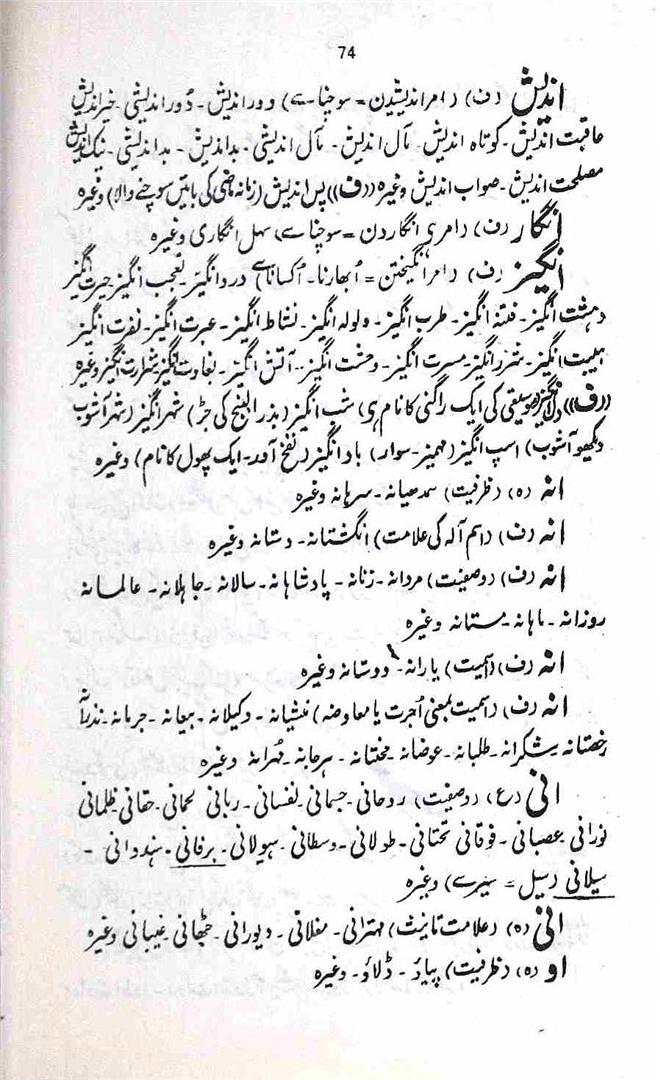 74
اندیش (ف) (امر اندیشیدن = سوچنا سے) دور اندیش - دُور اندیشی - خیر اندیش
عاقبت اندیش - کوتاہ اندیش - مآل اندیش - مآل اندیشی - بداندیش - بداندیشی - نیک اندیش
مصلحت اندیش - صواب اندیش وغیرہ ((ف)) پس اندیش (زمانہ ماضی کی باتیں سوچنے والا) وغیرہ
انگار (ف) (امر انگاردن = سوچنا سے) سہل انگاری وغیرہ
انگیز (ف) (امر انگیختن = اُبھارنا - اُکسانا سے) درد انگیز - تعجب انگیز - حیرت انگیز
دہشت انگیز - فتنہ انگیز - طرب انگیز - ولولہ انگیز - نشاط انگیز - عبرت انگیز - نفرت انگیز
ہیبت انگیز - شرر انگیز - مسرت انگیز - وحشت انگیز - آتش انگیز - بغاوت انگیز - شرارت انگیز وغیرہ
((ف)) دل انگیز (موسیقی کی ایک راگنی کا نام) شب انگیز (بذر البنج کی جڑ) شہر انگیز (شہر آشوب
دیکھو آشوب) اسپ انگیز (مہمیز - سوار) باد انگیز (نفخ آور - ایک پھول کا نام) وغیرہ
انہ (ہ) (ظرفیت) سمدھیانہ - سرہانہ وغیرہ
انہ (ف) (اسم آلہ کی علامت) انگشتانہ - دستانہ وغیرہ
انہ (ف) (وصفیت) مردانہ - زنانہ - پادشاہانہ - سالانہ - جاہلانہ - عالمانہ
روزانہ - ماہانہ - مستانہ وغیرہ
انہ (ف) (اسمیت) یارانہ - دوستانہ وغیرہ
انہ (ف) (اسمیت بمعنی اُجرت یا معاوضہ) منشیانہ - وکیلانہ - بیعانہ - جرمانہ - نذرانہ
رخصتانہ - شکرانہ - طلبانہ - عوضانہ - محنتانہ - ہرجانہ - مُہرانہ وغیرہ
انی (ع) (وصفیت) روحانی - جسمانی - نفسانی - ربانی - لحمانی - حقانی - ظلمانی
نورانی - عصبانی - فوقانی - تحتانی - طولانی - وسطانی - ہیولانی - برفانی - ہندوانی -
سیلانی (سیل = سیر سے) وغیرہ
انی (ہ) (علامت تانیث) مہترانی - مغلانی - دیورانی - جٹھانی وغیرہ
او (ہ) (ظرفیت) پیاؤ - ڈلاؤ - وغیرہ